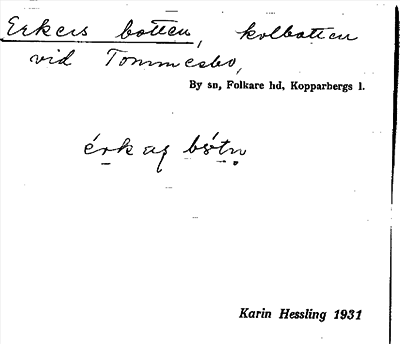 Erkers botten, kolbotten
vid Tommesbo,
By sn, Folkare hd, Kopparbergs l.
érkas bótn
Karin Hessling 1931